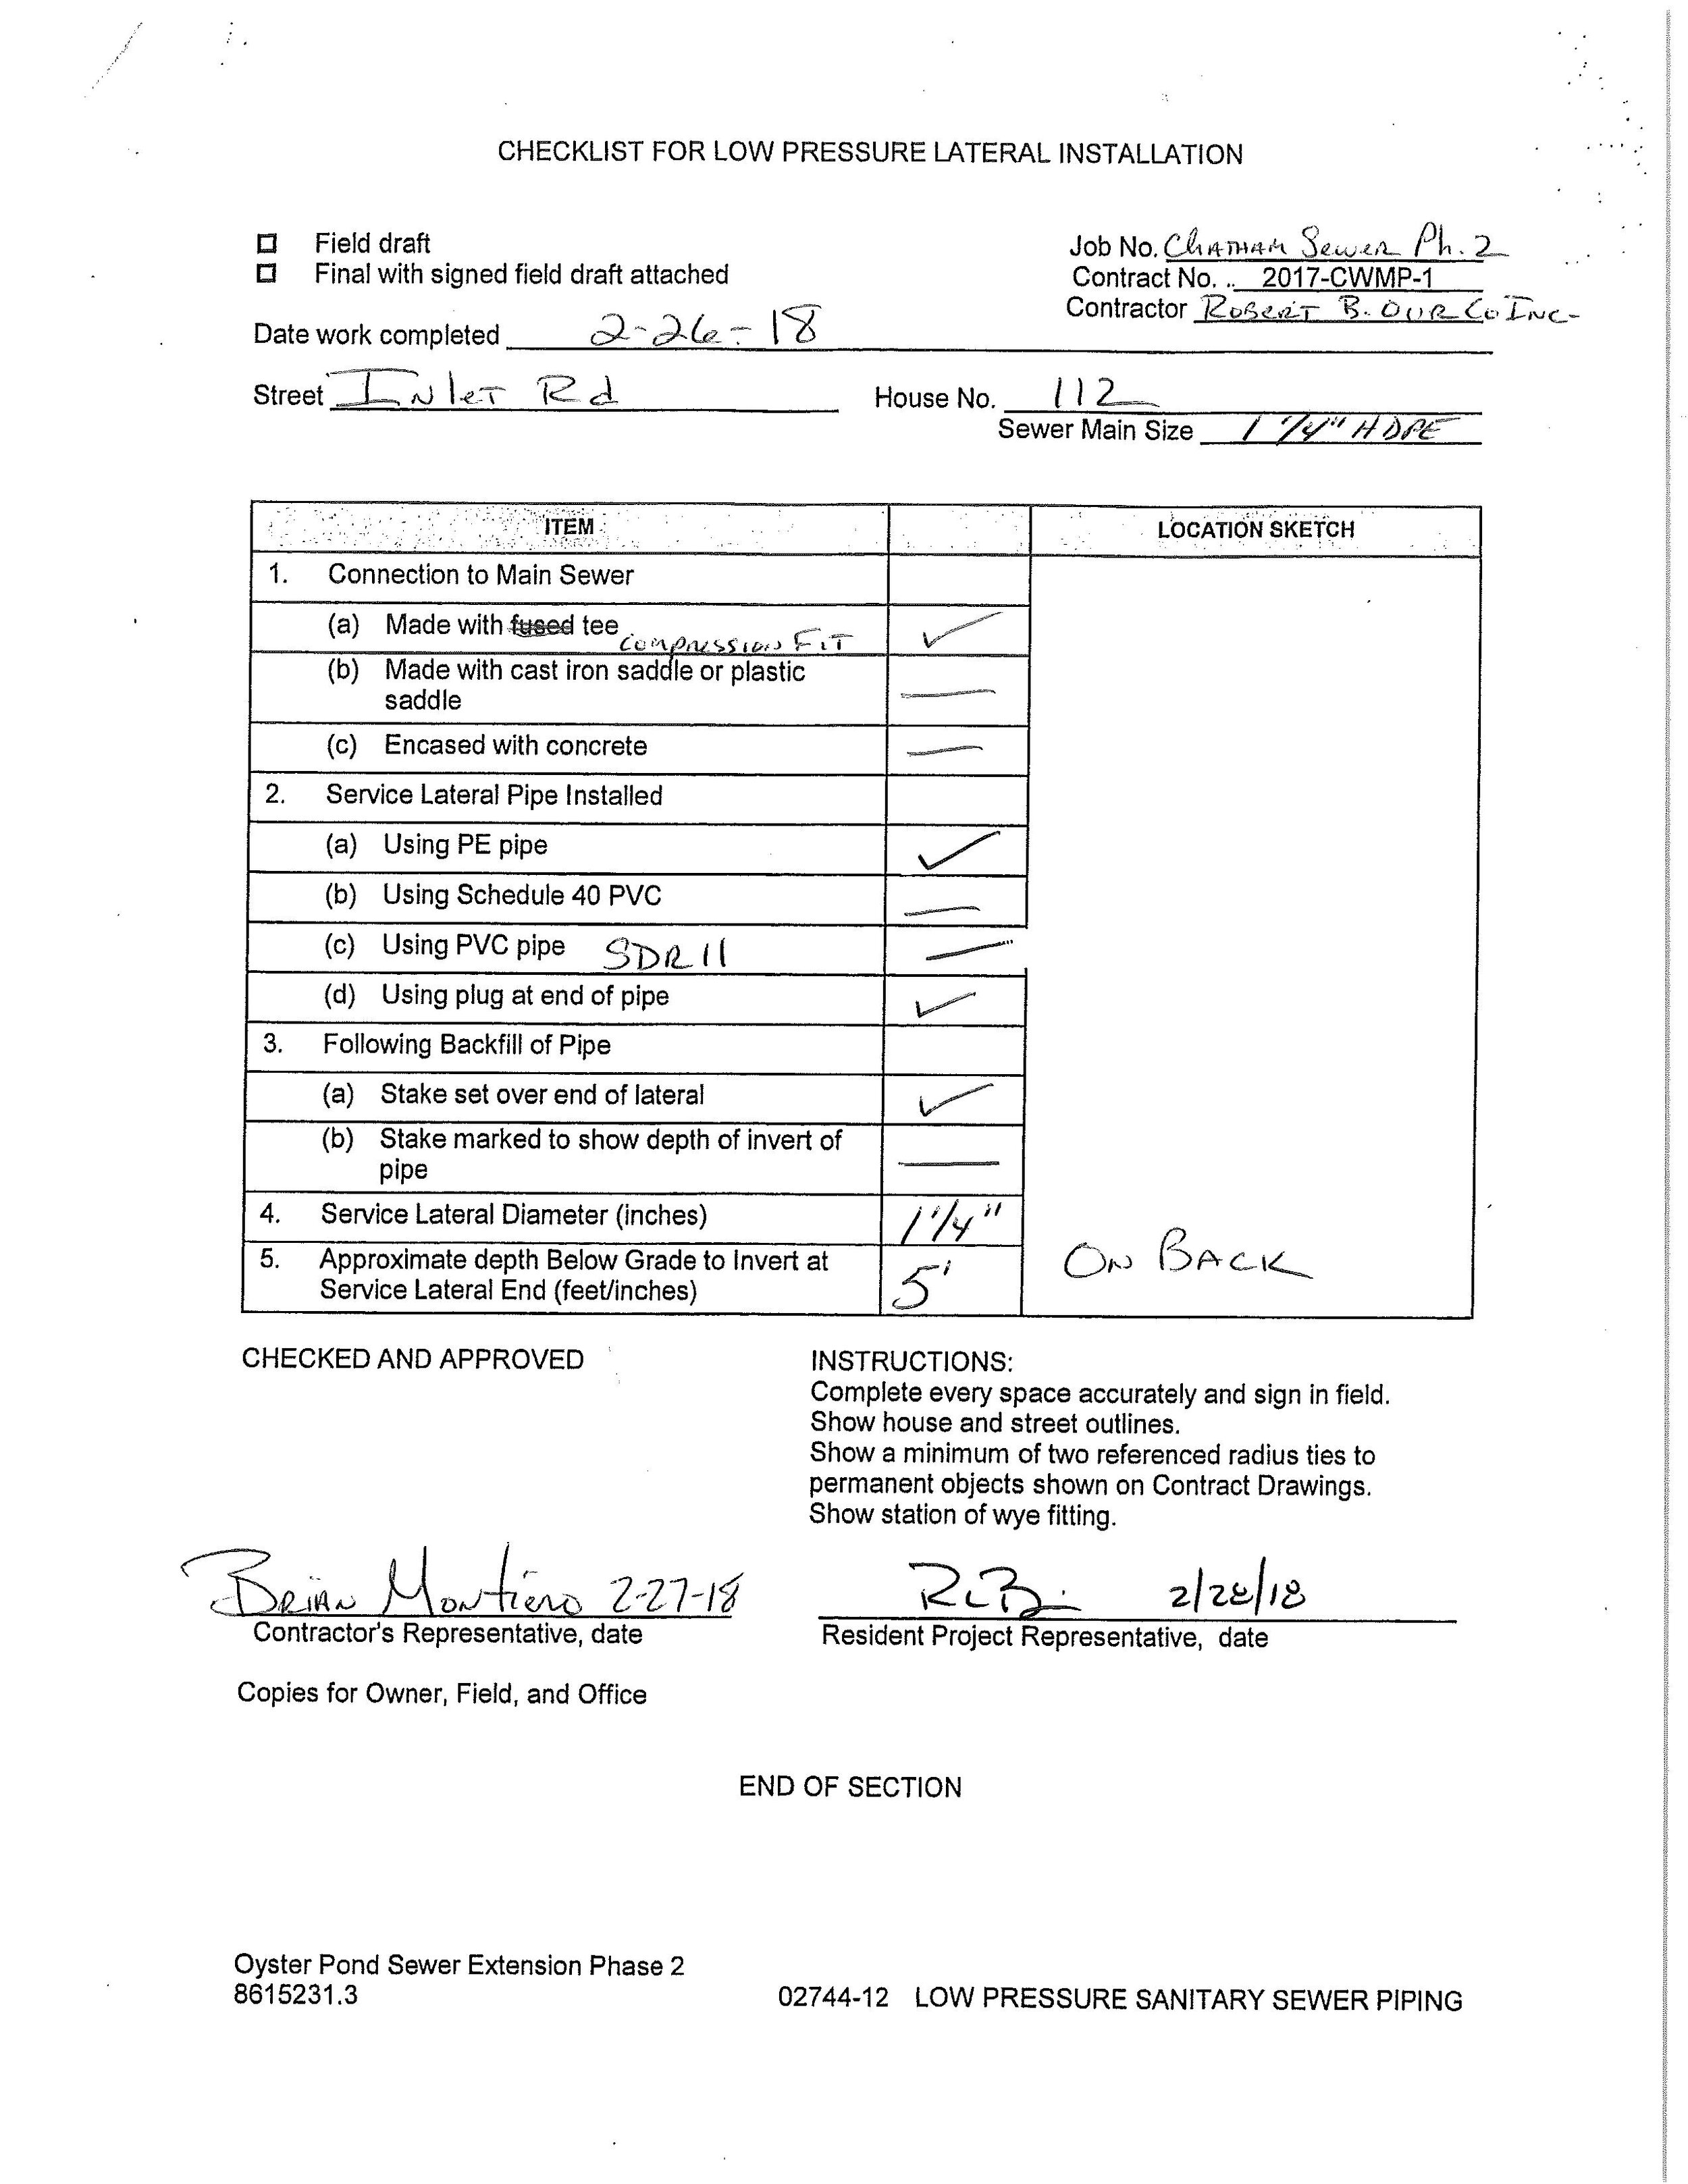 CHECKLIST FOR LOW PRESSURE LATERAL INSTALLATION
Field draft
Final with signed field draft attached
Job No. Chatham Sewer Ph. 2
Contract No. .. 2017-CWMP-1
Contractor Robert B. Our Co Inc-
Date work completed 2-26-18
Street Inlet Rd
House No. 112
Sewer Main Size 1 1/4" HDPE
ITEM
LOCATION SKETCH
1. Connection to Main Sewer
(a) Made with fused tee compression Fit ✓
(b) Made with cast iron saddle or plastic
saddle —
(c) Encased with concrete —
2. Service Lateral Pipe Installed
(a) Using PE pipe ✓
(b) Using Schedule 40 PVC —
(c) Using PVC pipe SDR 11 —
(d) Using plug at end of pipe ✓
3. Following Backfill of Pipe
(a) Stake set over end of lateral ✓
(b) Stake marked to show depth of invert of
pipe —
4. Service Lateral Diameter (inches) 1 1/4"
5. Approximate depth Below Grade to Invert at
Service Lateral End (feet/inches) 5'
On Back
CHECKED AND APPROVED
INSTRUCTIONS:
Complete every space accurately and sign in field.
Show house and street outlines.
Show a minimum of two referenced radius ties to
permanent objects shown on Contract Drawings.
Show station of wye fitting.
Brian Montiero 2-27-18
2/28/18
Contractor's Representative, date
Resident Project Representative, date
Copies for Owner, Field, and Office
END OF SECTION
Oyster Pond Sewer Extension Phase 2
8615231.3
02744-12 LOW PRESSURE SANITARY SEWER PIPING